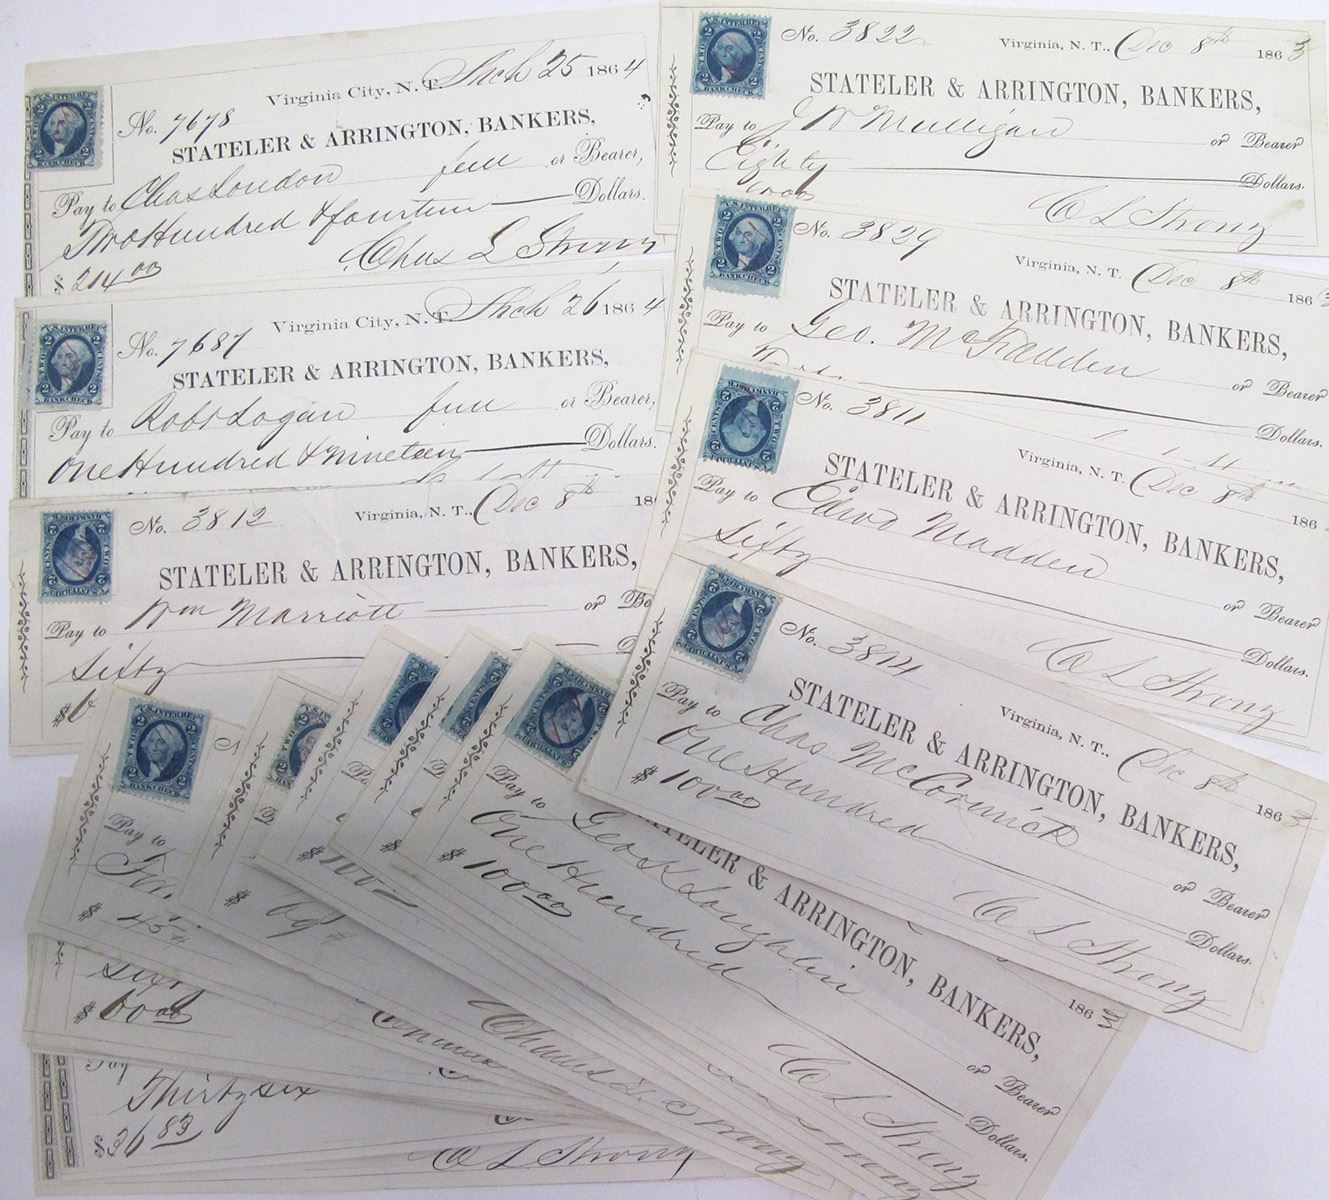 U.S. INTER REV.
2 2
TWO CENTS
BANK CHECK
Virginia City, N. T. Mch 25 1864
No. 7678
STATELER & ARRINGTON, BANKERS,
Pay to Chas London or Bearer,
Two Hundred & fourteen Dollars.
$ 214 00 Chas L Strong
U.S. INTER REV.
2 2
TWO CENTS
BANK CHECK
Virginia City, N. T. Mch 26 1864
No. 7687
STATELER & ARRINGTON, BANKERS,
Pay to Robt Logan or Bearer,
One Hundred & Nineteen Dollars.
No. 3812 Virginia, N. T., Dec 8th 186
STATELER & ARRINGTON, BANKERS,
Pay to Wm Marriott or Be
Sixty
$ 6
No. 3822 Virginia, N. T., Dec 8th 1863
STATELER & ARRINGTON, BANKERS,
Pay to J W Mulligan or Bearer
Eighty Dollars.
C L Strong
No. 3829 Virginia, N. T. Dec 8th 1863
STATELER & ARRINGTON, BANKERS,
Pay to Geo. McFadden or Bearer
Dollars.
No. 3811 Virginia, N. T. Dec 8th 186
STATELER & ARRINGTON, BANKERS,
Pay to Edwd Madden or Bearer
Sixty Dollars.
C L Strong
No. 3814 Virginia, N. T., Dec 8th 1863
STATELER & ARRINGTON, BANKERS,
Pay to Chas McCormick or Bearer
One Hundred Dollars.
$ 100 00 C L Strong
BANK CHECK
Pay to
$ 45
$ 69
$ 100
1863
TELER & ARRINGTON, BANKERS,
Pay to Geo K Loughlin or Bearer
One Hundred Dollars.
$ 100 00 C L Strong
$ 60 00
Pay
Thirty six
$ 36 83
C L Strong